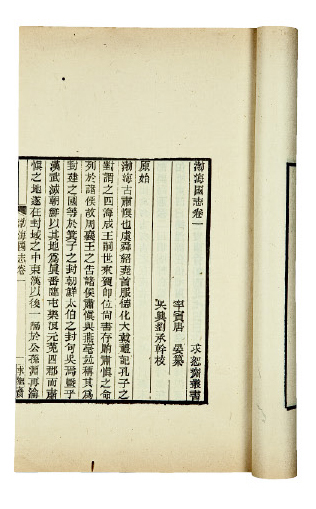 渤海國志卷一
求恕齋叢書
寧賓唐 晏纂
吳興劉承幹校
原始
渤海古肅愼也虞舜紹堯首服德化大戴禮記孔子之
對謂之四海成王前世來賀卽位尙書存賄肅愼之命
列於諸侯故周襄王之告諸侯肅愼與燕亳竝稱其為
封建之國等於箕子之封朝鮮太伯之封句吳焉
漢武滅朝鮮以其地為眞番臨屯樂浪元菟四郡而肅
愼之地遂在封域之中東漢以後一屬於公孫淵再淪
渤海國志卷一
一
求恕齋